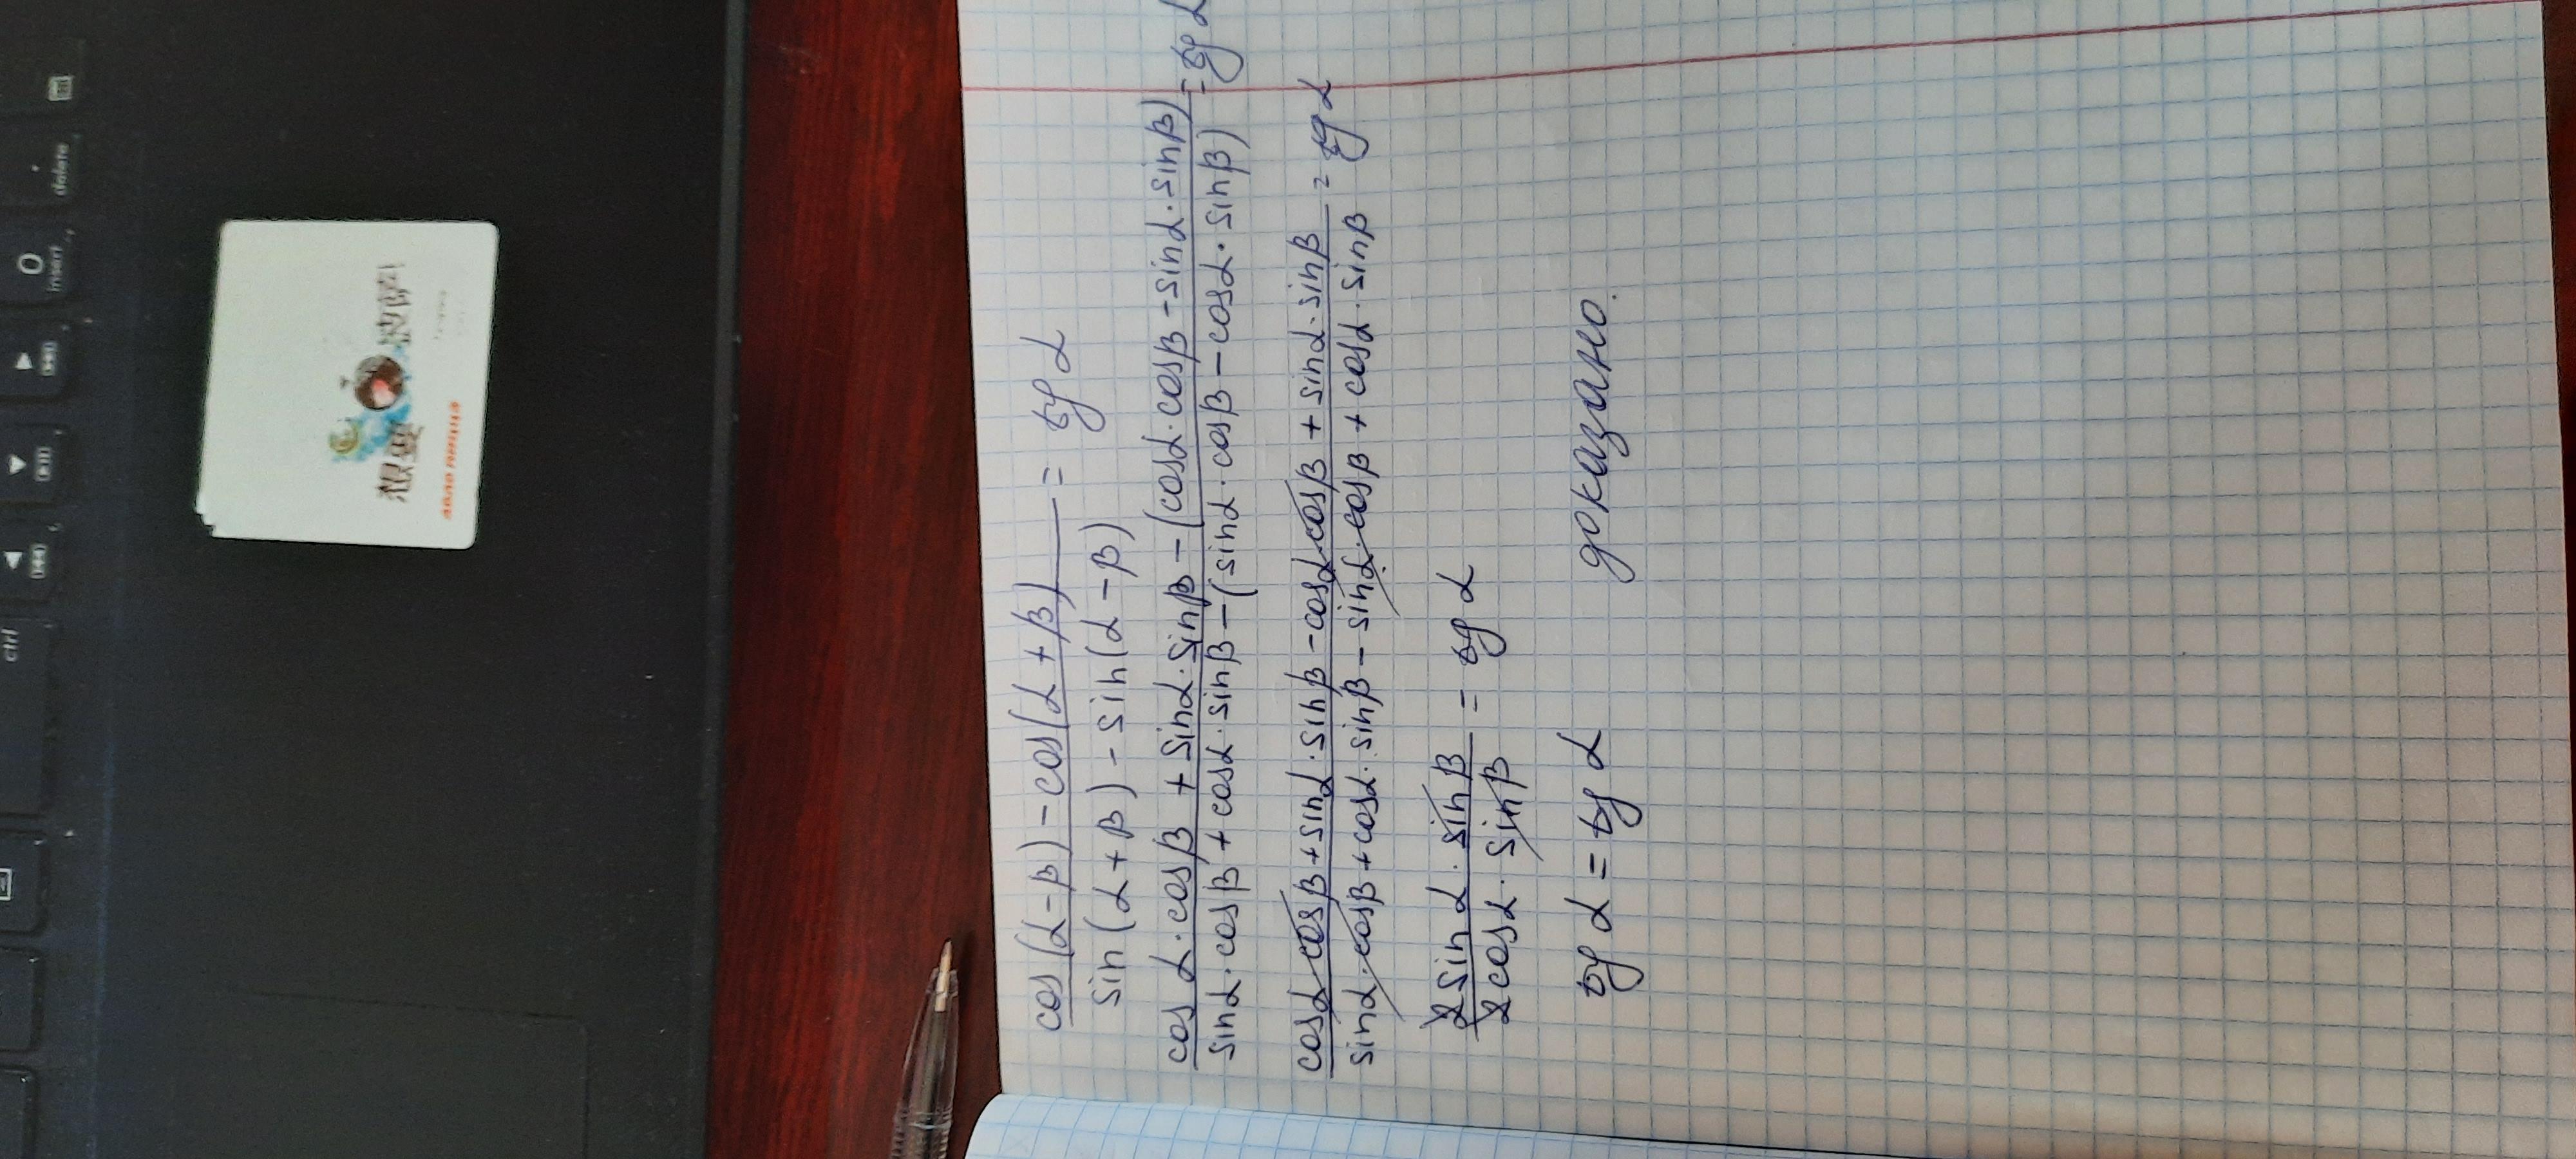 cos(α-β)-cos(α+β) = tg α
sin(α+β)-sin(α-β)
cos α·cos β + sinα·sinβ-(cosα·cosβ-sinα·sinβ) = tg α
sinα·cosβ+cosα·sinβ-(sinα·cosβ-cosα·sinβ)
cosα·cosβ+sinα·sinβ-cosα·cosβ+sinα·sinβ = tg α
sinα·cosβ+cosα·sinβ-sinα·cosβ+cosα·sinβ
2sinα·sinβ = tg α
2cosα·sinβ
tg α = tg α доказано.
ctrl
0
insert
.
delete
想要